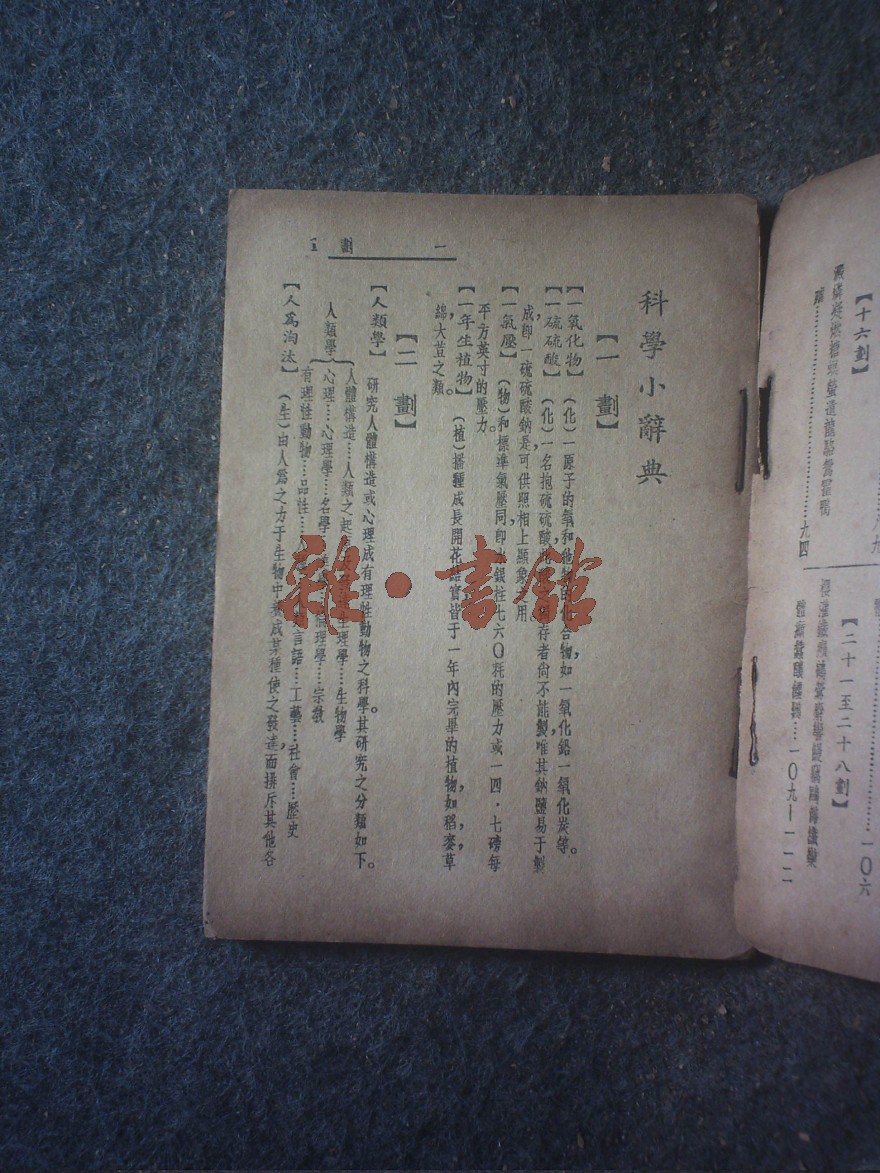 一 劃 五
科學小辭典
【一 劃】
【一氧化物】 (化)一原子的氧和他 化合物，如一氧化鉛一氧化炭等。
【一硫硫酸】 (化)一名抱硫硫酸 存者尙不能製，唯其鈉鹽易于製
成，卽一硫硫酸鈉是，可供照相上顯象之用
【一氣壓】 (物)和標準氣壓同，卽水銀柱七六〇粍的壓力或一四·七磅每
平方英寸的壓力。
【一年生植物】 (植)播種成長開花結實皆于一年內完畢的植物，如稻，麥，草
，綿大荳之類。
【二 劃】
【人類學】 研究人體構造或心理成有理性動物之科學。其研究之分類如下。
人類學
人體構造……人類之起 生理學……生物學
心理……心理學……名學 倫理學……宗教
有理性動物……品性…… 言語……工藝……社會……歷史
【人爲淘汰】 (生)由人爲之力于生物中 成某種使之發達，而排斥其他各
雜·書館
【十六劃】
九四
【二十一至二十八劃】
一〇六
一〇九—一一二